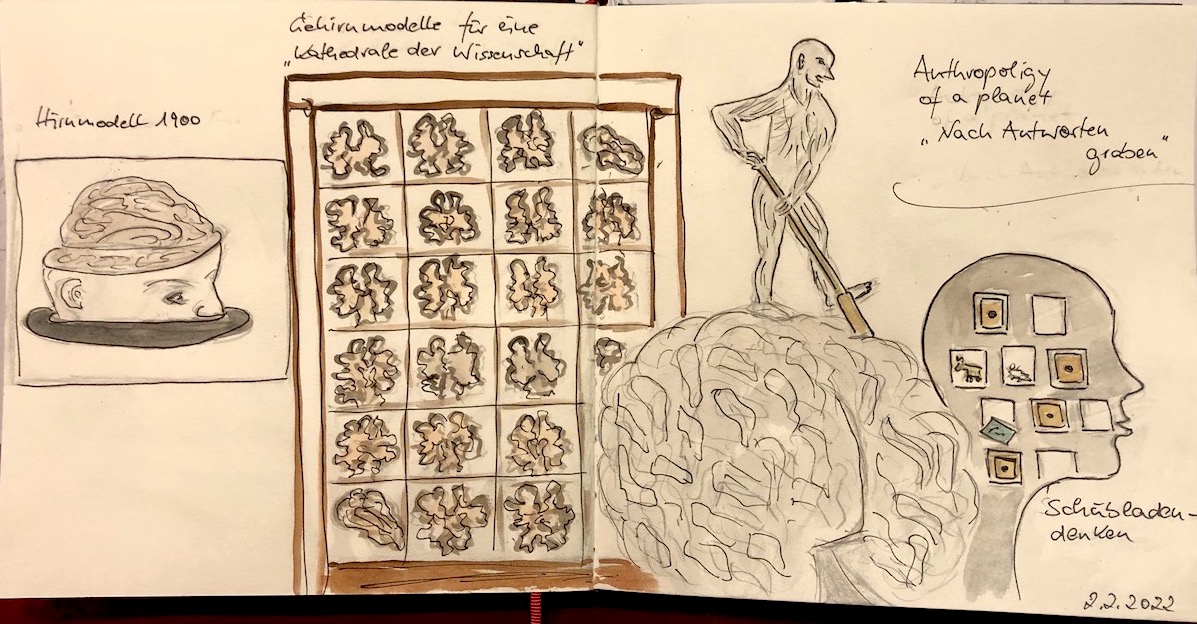 Gehirnmodelle für eine
„Kathedrale der Wissenschaft“
Hirnmodell 1900
Anthropoligy
of a planet
„Nach Antworten
graben“
Schubladen-
denken
2.2.2022